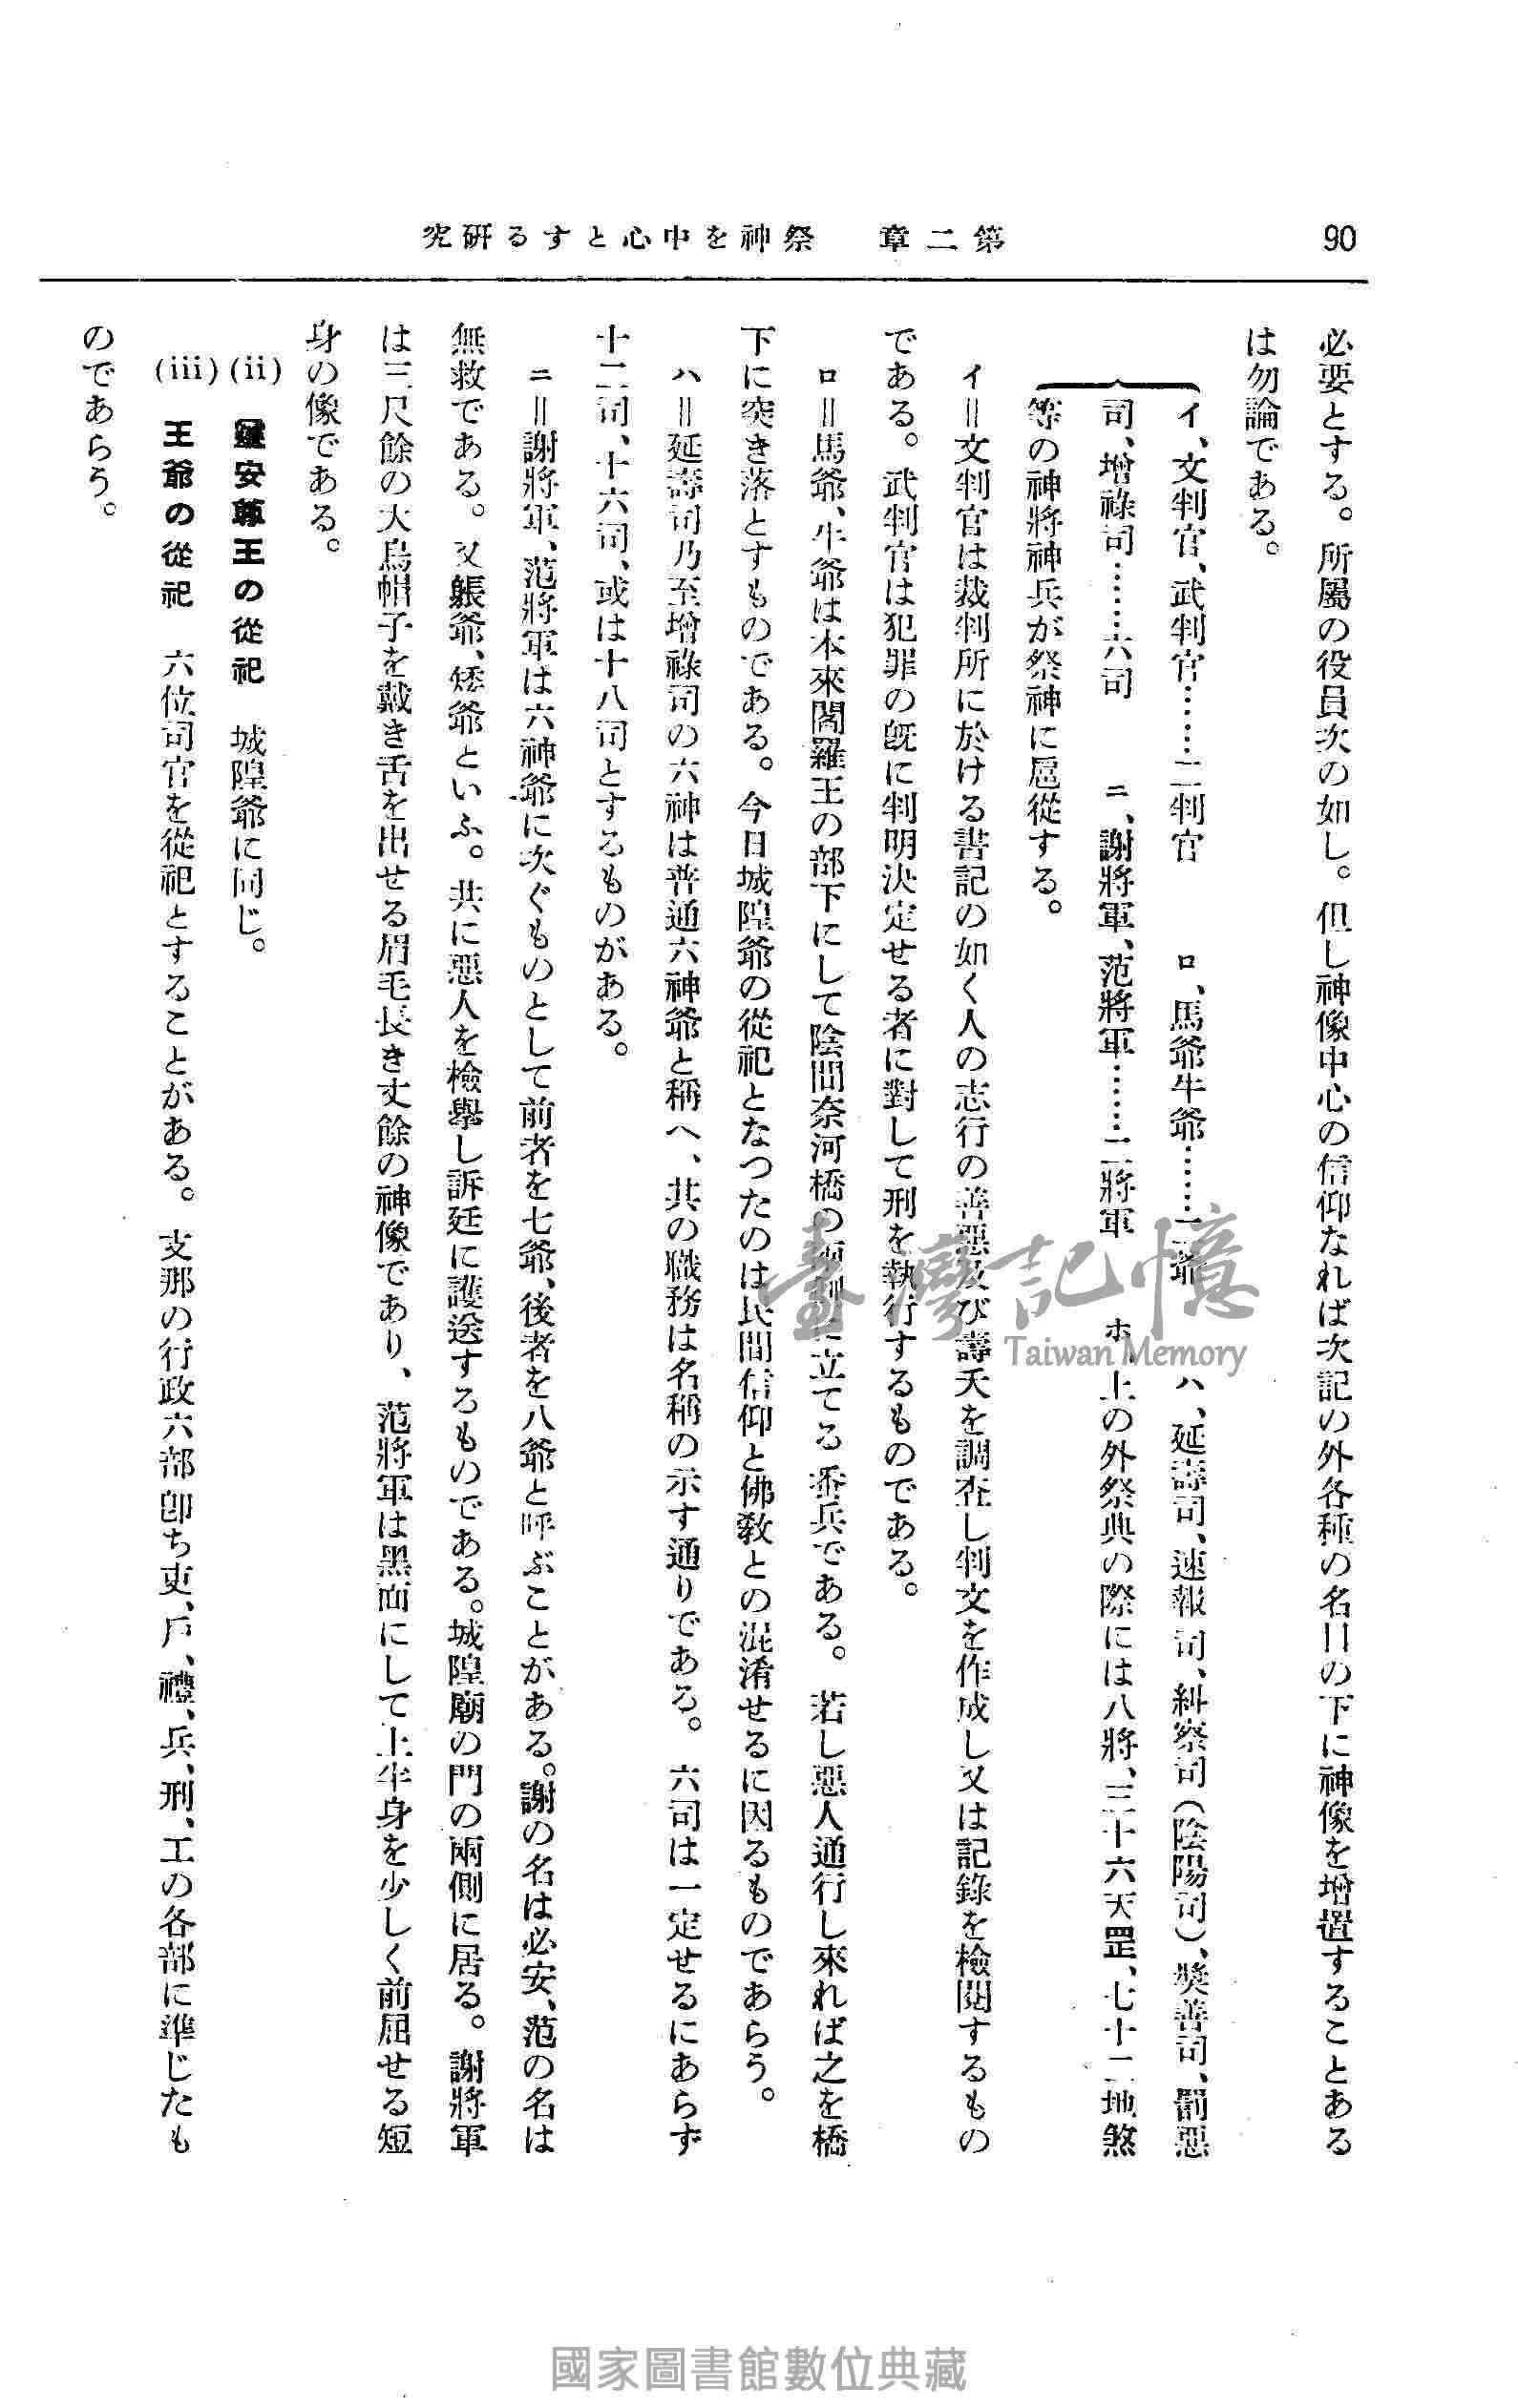 90
第二章　祭神を中心とする研究
必要とする。所屬の役員次の如し。但し神像中心の信仰なれば次記の外各種の名目の下に神像を增置することある
は勿論である。
イ、文判官、武判官……二判官　ロ、馬爺牛爺……二爺　ハ、延壽司、速報司、糾察司(陰陽司)、獎善司、罰惡
司、增祿司……六司　ニ、謝將軍、范將軍……二將軍　ホ、上の外祭典の際には八將、三十六天罡、七十二地煞
等の神將神兵が祭神に扈從する。
イ＝文判官は裁判所に於ける書記の如く人の志行の善惡及び壽夭を調査し判文を作成し又は記錄を檢閲するもの
である。武判官は犯罪の既に判明決定せる者に對して刑を執行するものである。
ロ＝馬爺、牛爺は本來閻羅王の部下にして陰間奈河橋の兩側に立てる番兵である。若し惡人通行し來れば之を橋
下に突き落とすものである。今日城隍爺の從祀となつたのは民間信仰と佛教との混淆せるに因るものであらう。
ハ＝延壽司乃至增祿司の六神は普通六神爺と稱へ、其の職務は名稱の示す通りである。六司は一定せるにあらず
十二司、十六司、或は十八司とするものがある。
ニ＝謝將軍、范將軍は六神爺に次ぐものとして前者を七爺、後者を八爺と呼ぶことがある。謝の名は必安、范の名は
無救である。又躼爺、矮爺といふ。共に惡人を檢擧し訴廷に護送するものである。城隍廟の門の兩側に居る。謝將軍
は三尺餘の大烏帽子を戴き舌を出せる眉毛長き丈餘の神像であり、范將軍は黑面にして上半身を少しく前屈せる短
身の像である。
(ii)　靈安尊王の從祀　城隍爺に同じ。
(iii)　王爺の從祀　六位司官を從祀とすることがある。支那の行政六部卽ち吏、戶、禮、兵、刑、工の各部に準じたも
のであらう。
臺灣記憶
Taiwan Memory
國家圖書館數位典藏